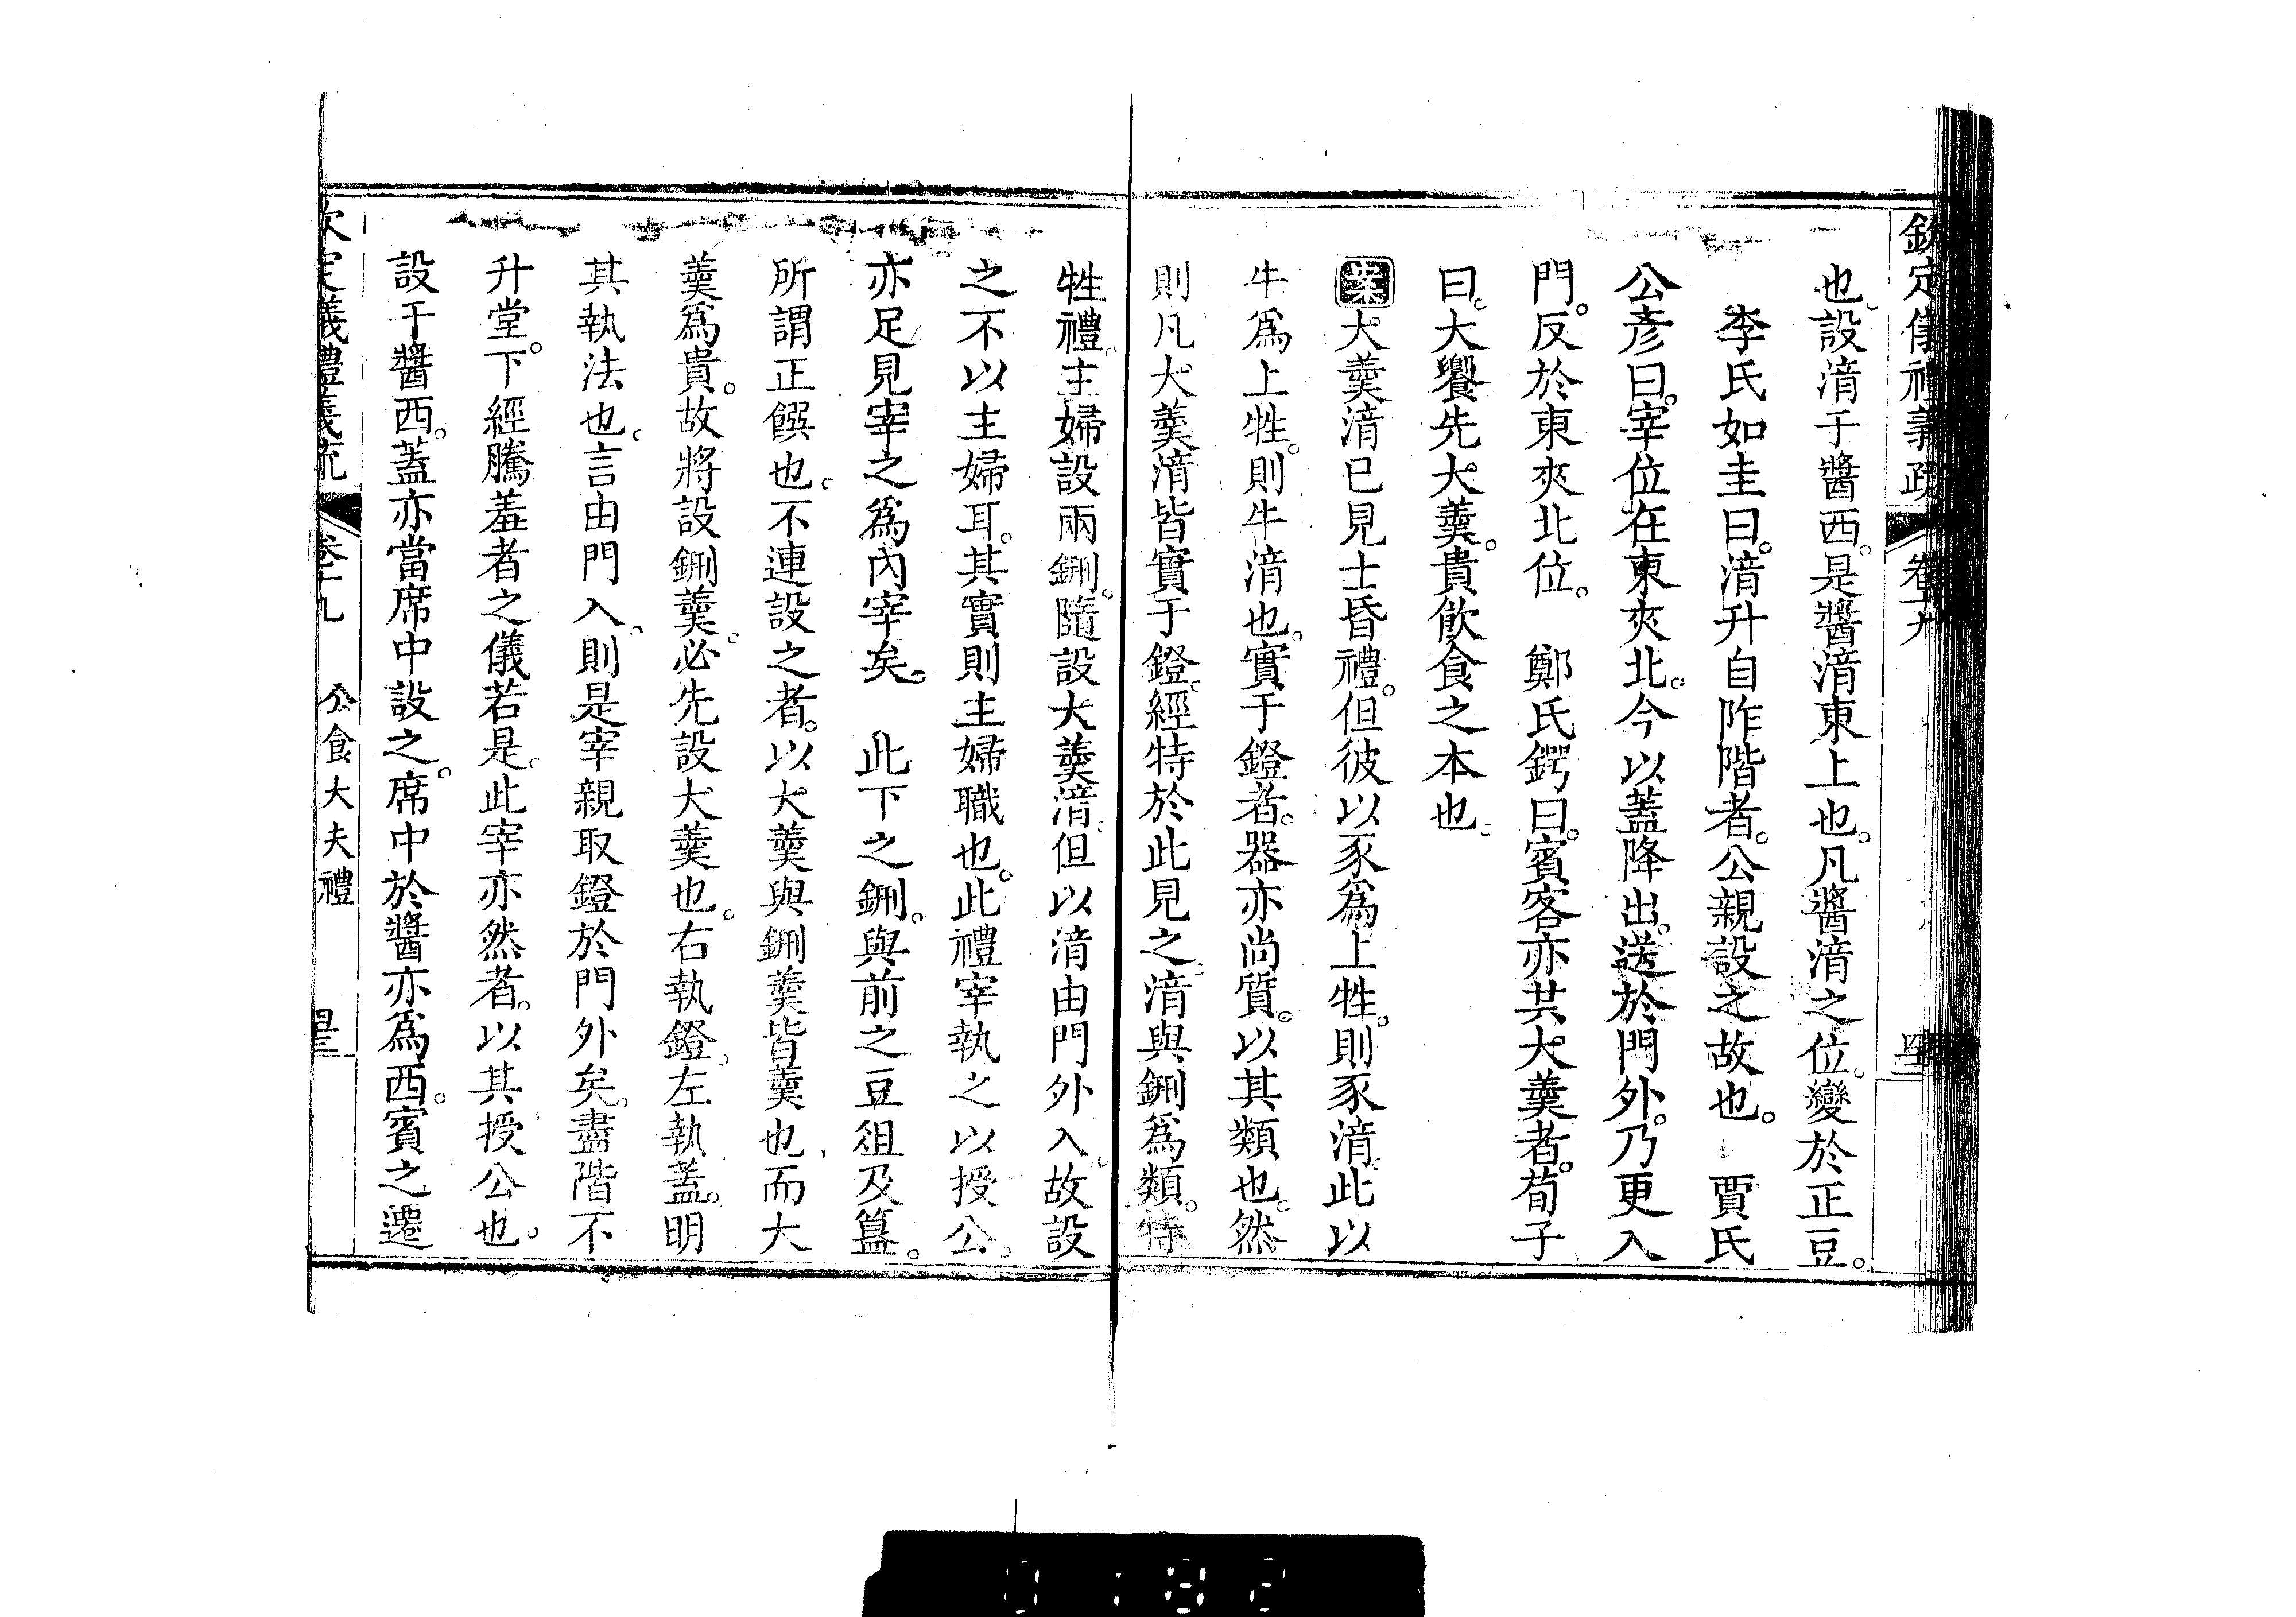 也。設湇于醬西。是醬湇東上也。凡醬湇之位。變於正豆。
李氏如圭曰。湇升自阼階者。公親設之故也。　賈氏
公彥曰。宰位在東夾北。今以蓋降出。送於門外。乃更入
門。反於東夾北位。　鄭氏鍔曰。賓客亦共大羹者。荀子
曰。大饗先大羹。貴飲食之本也。
案大羹湇已見士昏禮。但彼以豕爲上牲。則豕湇。此以
牛爲上牲。則牛湇也。實于鐙者。器亦尚質。以其類也。然
則凡大羹湇皆實于鐙。經特於此見之。湇與鉶爲類。特
牲禮。主婦設兩鉶。隨設大羹湇。但以湇由門外入。故設
之不以主婦耳。其實則主婦職也。此禮宰執之以授公。
亦足見宰之爲內宰矣。　此下之鉶。與前之豆俎及簋。
所謂正饌也。不連設之者。以大羹與鉶羹皆羹也。而大
羹爲貴。故將設鉶羹。必先設大羹也。右執鐙。左執蓋。明
其執法也。言由門入。則是宰親取鐙於門外矣。盡階不
升堂。下經騰羞者之儀若是。此宰亦然者。以其授公也。
設于醬西。蓋亦當席中設之。席中於醬亦爲西。賓之遷
欽定儀禮義疏　卷十九　公食大夫禮